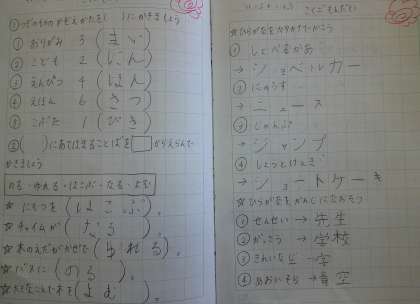 ①つぎのもののかぞえかたを( )にかきましょう
①おりがみ 3 (まい)
②こども 2 (にん)
③えんぴつ 4 (ほん)
④えほん 6 (さつ)
⑤こぶた 1 (ぴき)
②( )にあてはまることばを□からえらんで
かきましょう
のる・ゆれる・はこぶ・なる・よむ
☆にもつを(はこぶ)。
☆チャイムが(なる)。
☆木のえだがかぜで(ゆれる)。
☆バスに(のる)。
(よむ)。
こくごもんだい
☆ひらがなをカタカナでかこう
①しょべるかあ
→ショベルカー
②にゅうす
→ニュース
③じゃんぷ
→ジャンプ
④しょうとけえき
→ショートケーキ
☆ひらがなをかんじになおそう
①せんせい→先生
②がっこう→学校
③きれいな→字
④あおいそら→青空